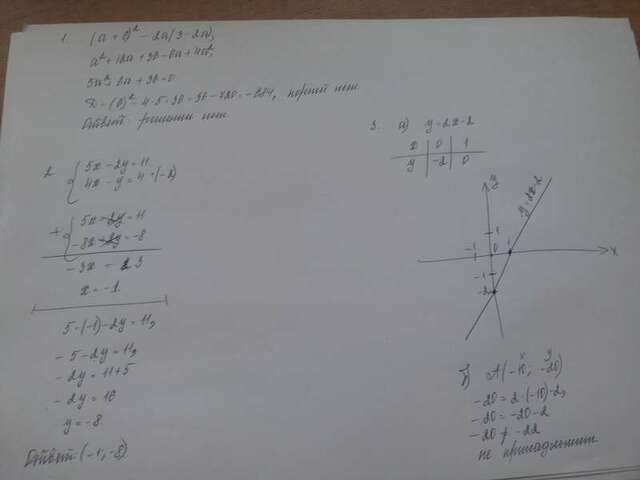 1. (a + 6)² - 2a(3 - 2a);
a² + 12a + 36 - 6a + 4a²;
5a² + 6a + 36 = 0
D = (6)² - 4·5·36 = 36 - 720 = -684, корней нет
Ответ: решения нет
2. { 5x - 2y = 11
4x - y = 4 ·(-2)
+ { 5x - 2y = 11
-8x + 2y = -8
-3x = 3
x = -1
5·(-1) - 2y = 11,
-5 - 2y = 11,
-2y = 11 + 5
-2y = 16
y = -8
Ответ (-1, -8)
3. a) y = 2x - 2
x 0 1
y -2 0
y
y = 2x - 2
1
-1 0 1 x
-1
-2
x y
б) A(-10, -20)
-20 = 2·(-10) - 2,
-20 = -20 - 2
-20 ≠ -22
не принадлежит